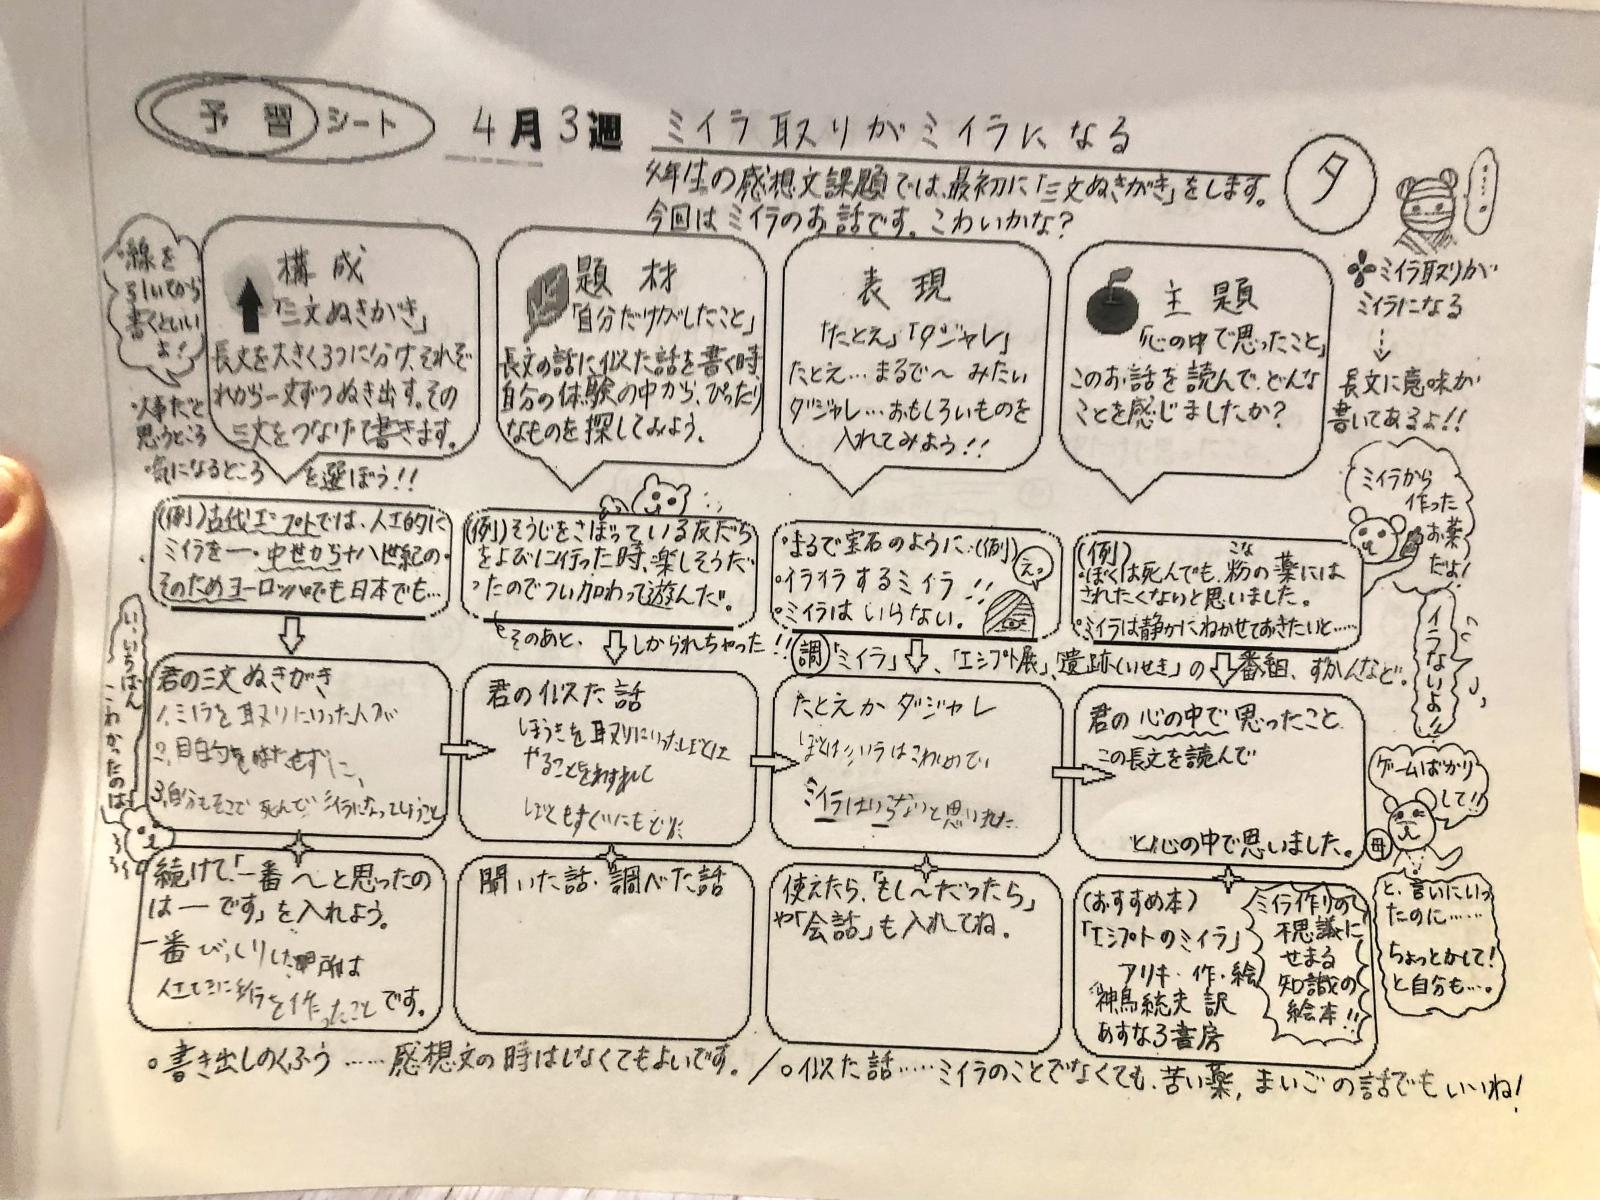 予習シート 4月3週 ミイラ取りがミイラになる
夕
年生の感想文課題では、最初に「三文ぬきがき」をします。
今回はミイラのお話です。こわいかな?
・線を
引いてから
書くといい
よ!
構成
「三文ぬきがき」
長文を大きく3つに分け、それぞ
れから一文ずつぬき出す。その
三文をつなげて書きます。
・大事だと
思うところ
・気になるところ を選ぼう!!
題材
「自分だけがしたこと」
長文の話に似た話を書く時、
自分の体験の中から、ぴったり
なものを探してみよう。
表現
「たとえ」「ダジャレ」
たとえ…まるで〜みたい
ダジャレ…おもしろいものを
入れてみよう!!
主題
「心の中で思ったこと」
このお話を読んで、どんな
ことを感じましたか?
……
ミイラ取りが
ミイラになる
長文に意味が
書いてあるよ!!
ミイラから
作った
お薬
だよ!
(例)古代エジプトでは、人工的に
ミイラを―・中世から十八世紀の・
そのためヨーロッパでも日本でも…
(例)そうじをさぼっている友だち
をよびに行った時、楽しそうだ
ったのでつい加わって遊んだ。
そのあと、しかられちゃった!!
・まるで宝石のように(例)
・イライラするミイラ!!
・ミイラはいらない。
えっ
(例)
・ぼくは死んでも、粉の薬には
こな
されたくないと思いました。
・ミイラは静かにねかせておきたいと……
調「ミイラ」、「エジプト展」、「遺跡(いせき)」の番組、ずかんなど。
イラないよ!!
い、いちばん
こわかったのは
君の三文ぬきがき
1.ミイラを取りにいった人が
2.目的をはたせずに、
3.自分もそこで死んで ミイラになってしまうこと
君の似た話
ほうきを取りにいったぼくは
やることをわすれて
たとえかダジャレ
ミイラはいらないと思いました
君の心の中で思ったこと
この長文を読んで
と心の中で思いました。
ゲームばかり
して!!
母
と、言いにいっ
たのに……
ちょっとかして!
と自分も…。
続けて、「一番〜と思ったの
は―です」を入れよう。
一番びっくりした所は
です。
聞いた話・調べた話
使えたら、「もし〜だったら」
や「会話」も入れてね。
(おすすめ本)
「エジプトのミイラ」
アリキ・作・絵
神鳥統夫 訳
あすなろ書房
ミイラ作りの
不思議に
せまる
知識の
絵本!!
。書き出しのくふう……感想文の時はしなくてもよいです。/。似た話……ミイラのことでなくても、苦い薬、まいごの話でもいいね!